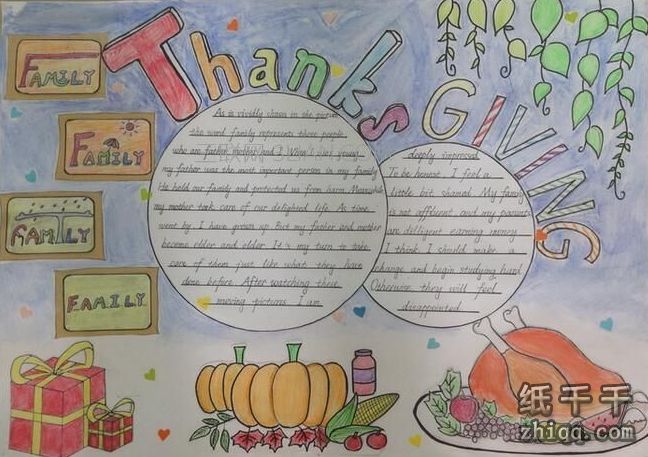 Thanks
GIVING
FAMILY
FAMILY
FAMILY
FAMILY
As is vividly shown in the picture
the word family represents three people
who are father mother and I. When I was young
my father was the most important person in my family
He held our family and protected us from harm. Meanwhile
my mother took care of our delighted life. As time
went by, I have grown up. But my father and mother
become older and older. It's my turn to take
care of them just like what they have
done before. After watching these
moving pictures. I am
deeply impressed
To be honest, I feel a
little bit shamed. My family
is not affluent and my parents
are diligent earning money
I think I should make a
change and begin studying hard
Otherwise they will feel
disappointed
纸千千
zhiqq.com